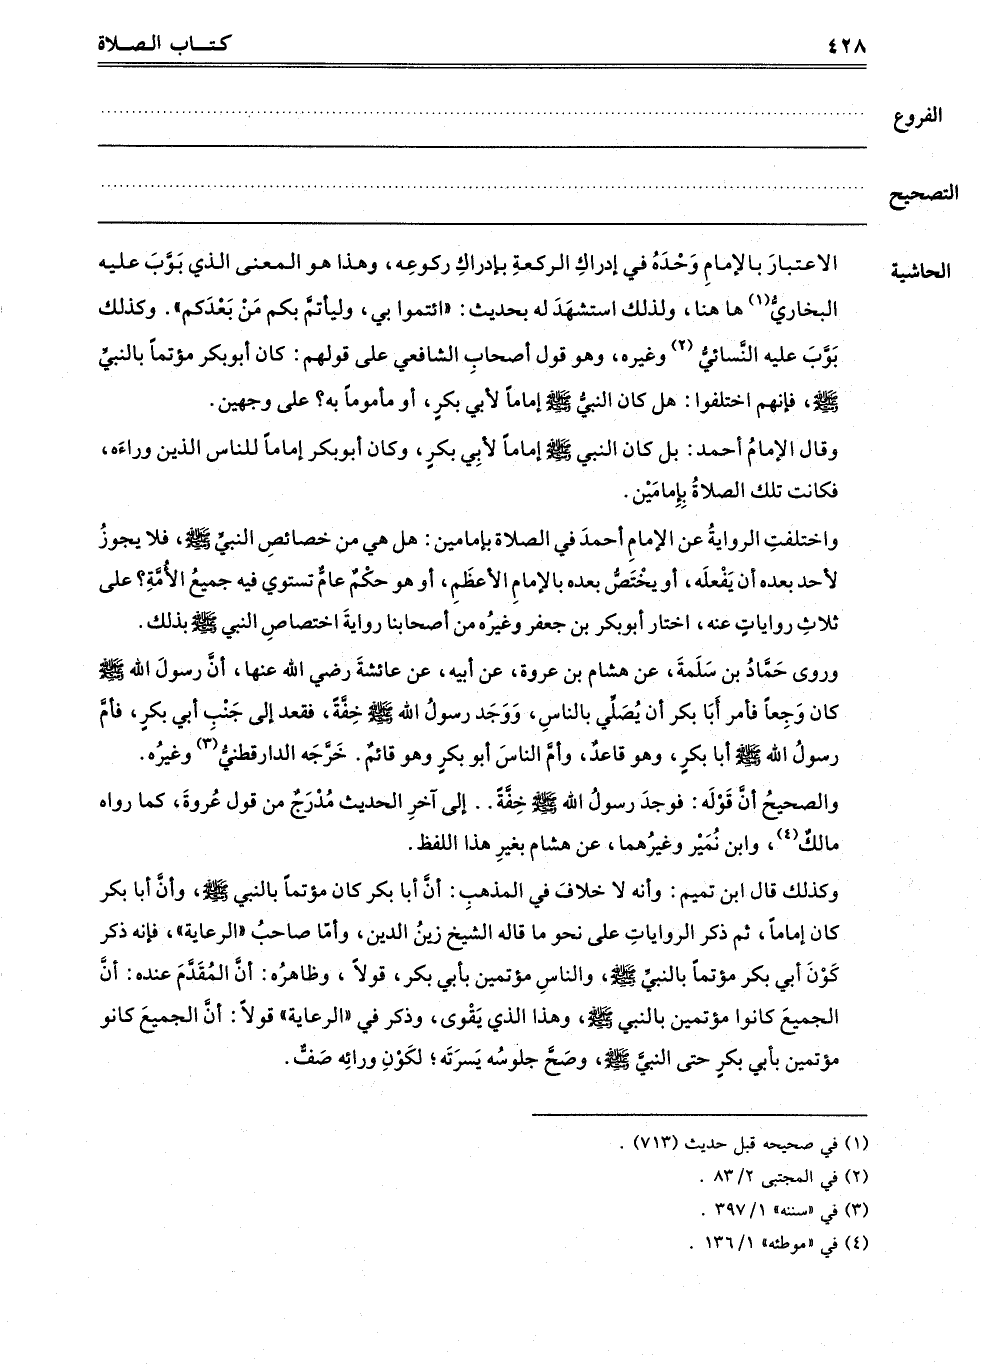 ٤٢٨ كتــاب الصــلاة
الفروع ....................
التصحيح ....................
الحاشية الاعتبارَ بالإمامِ وَحْدَهُ في إدراكِ الركعةِ بإدراكِ ركوعِه، وهذا هو المعنى الذي بَوَّبَ عليه
البخاريُّ(١) ها هنا، ولذلك استشهَدَ له بحديث: «ائتموا بي، وليأتمَّ بكم مَنْ بَعْدَكم». وكذلك
بَوَّبَ عليه النَّسائيُّ(٢) وغيره، وهو قول أصحابِ الشافعي على قولهم: كان أبوبكر مؤتماً بالنبيِّ
ﷺ، فإنهم اختلفوا: هل كان النبيُّ ﷺ إماماً لأبي بكرٍ، أو مأموماً به؟ على وجهين.
وقال الإمامُ أحمد: بل كان النبي ﷺ إماماً لأبِي بكرٍ، وكان أبوبكر إماماً للناس الذين وراءَه،
فكانت تلك الصلاةُ بِإِمامَيْن.
واختلفتِ الروايةُ عن الإمامِ أحمدَ في الصلاة بإمامين: هل هي من خصائصِ النبيِّ ﷺ، فلا يجوزُ
لأحد بعده أن يَفْعلَه، أو يخْتَصُّ بعده بالإمامِ الأعظَمِ، أو هو حكْمٌ عامٌّ تستوي فيه جميعُ الأُمَّةِ؟ على
ثلاثِ رواياتٍ عنه، اختار أبوبكر بن جعفر وغيرُه من أصحابنا روايةَ اختصاصِ النبي ﷺ بذلك.
وروى حَمَّادُ بن سَلَمةَ، عن هشام بن عروة، عن أبيه، عن عائشةَ رضي الله عنها، أنَّ رسولَ الله ﷺ
كان وَجِعاً فأمر أَبَا بكر أن يُصَلِّي بالناسِ، وَوَجَد رسولُ الله ﷺ خِفَّةً، فقعد إلى جَنْبِ أبي بكرٍ، فأمَّ
رسولُ الله ﷺ أبا بكرٍ، وهو قاعدٌ، وأمَّ الناسَ أبو بكرٍ وهو قائمٌ. خَرَّجَه الدارقطنيُّ(٣) وغيرُه.
والصحيحُ أنَّ قَوْلَه: فوجدَ رسولُ الله ﷺ خِفَّةً.. إلى آخرِ الحديث مُدْرَجٌ من قول عُروةَ، كما رواه
مالكٌ(٤)، وابن نُمَيْر وغيرُهما، عن هشام بغيرِ هذا اللفظ.
وكذلك قال ابن تميم: وأنه لا خلافَ في المذهبِ: أنَّ أبا بكر كان مؤتماً بالنبي ﷺ، وأنَّ أبا بكر
كان إماماً، ثم ذكر الرواياتِ على نحو ما قاله الشيخ زينُ الدين، وأمّا صاحبُ «الرعاية»، فإنه ذكر
كَوْنَ أبي بكر مؤتماً بالنبيِّ ﷺ، والناسِ مؤتمين بأبي بكر، قولاً، وظاهرُه: أنَّ المُقَدَّمَ عنده: أنَّ
الجميعَ كانوا مؤتمين بالنبي ﷺ، وهذا الذي يَقْوى، وذكر في «الرعاية» قولاً: أنَّ الجميعَ كانو
مؤتمين بأبي بكرٍ حتى النبيَّ ﷺ، وصَحَّ جلوسُه يَسرَتَه؛ لكَوْنِ ورائِه صَفٌّ.
(١) في صحيحه قبل حديث (٧١٣).
(٢) في المجتبى ٨٣/٢.
(٣) في «سننه» ٣٩٧/١.
(٤) في «موطئه» ١٣٦/١.